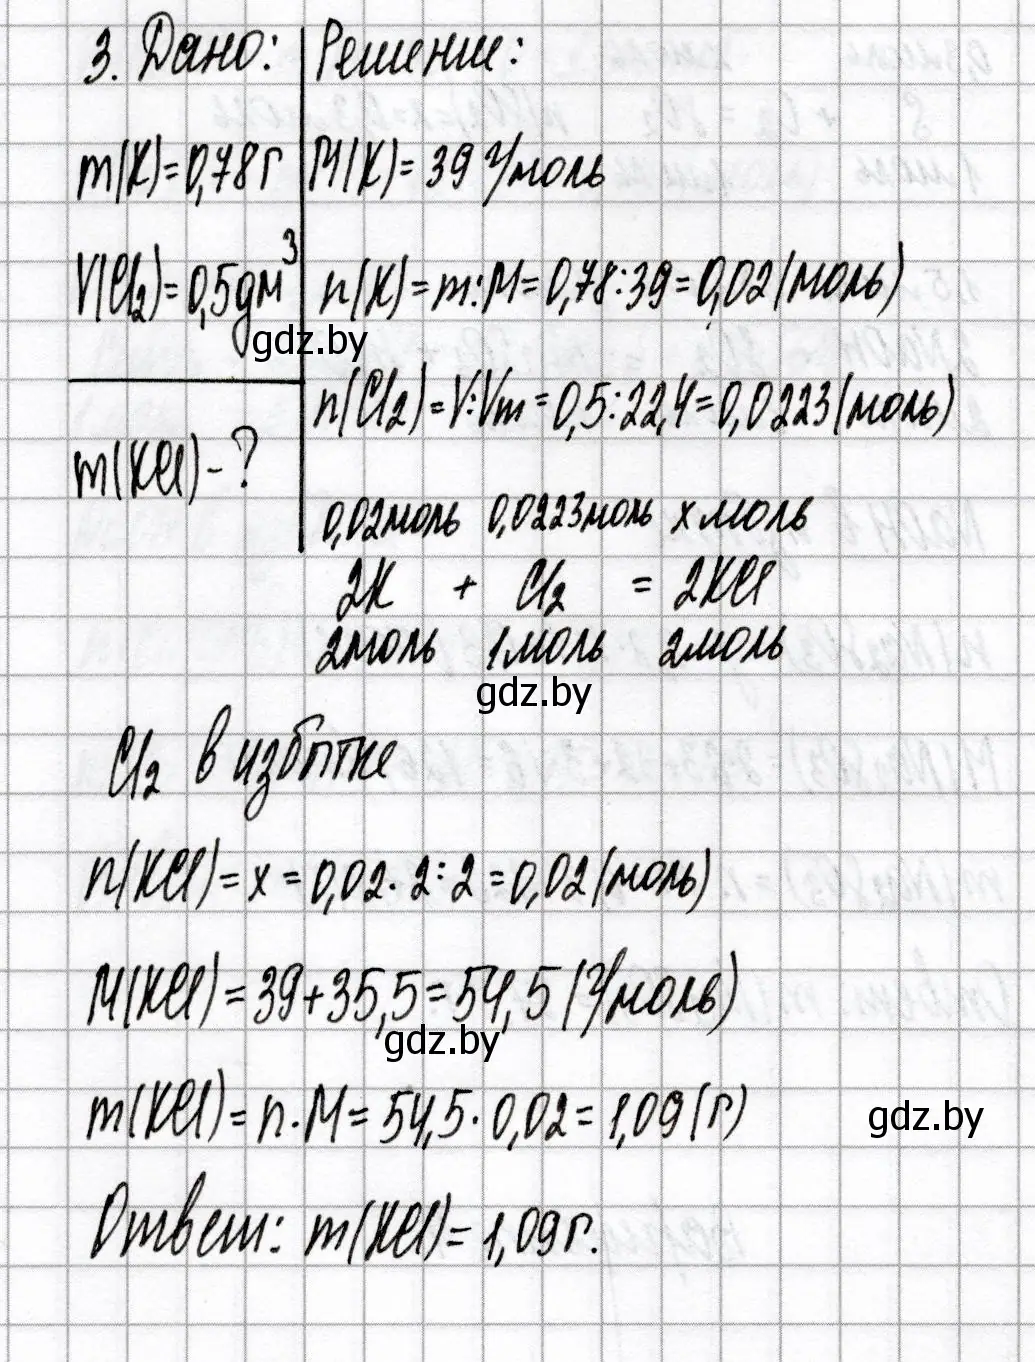 3. Дано:
Решение:
m(K)=0,78г
M(K)=39 г/моль
V(Cl₂)=0,5дм³
n(K)=m:M=0,78:39=0,02(моль)
gdz.by
n(Cl₂)=V:Vm=0,5:22,4=0,0223(моль)
m(KCl)-?
0,02моль 0,0223моль x моль
2K + Cl₂ = 2KCl
2моль 1моль 2моль
gdz.by
Cl₂ в избытке
n(KCl)=x=0,02·2:2=0,02(моль)
M(KCl)=39+35,5=54,5(г/моль)
gdz.by
m(KCl)=n·M=54,5·0,02=1,09(г)
gdz.by
Ответ: m(KCl)=1,09г.